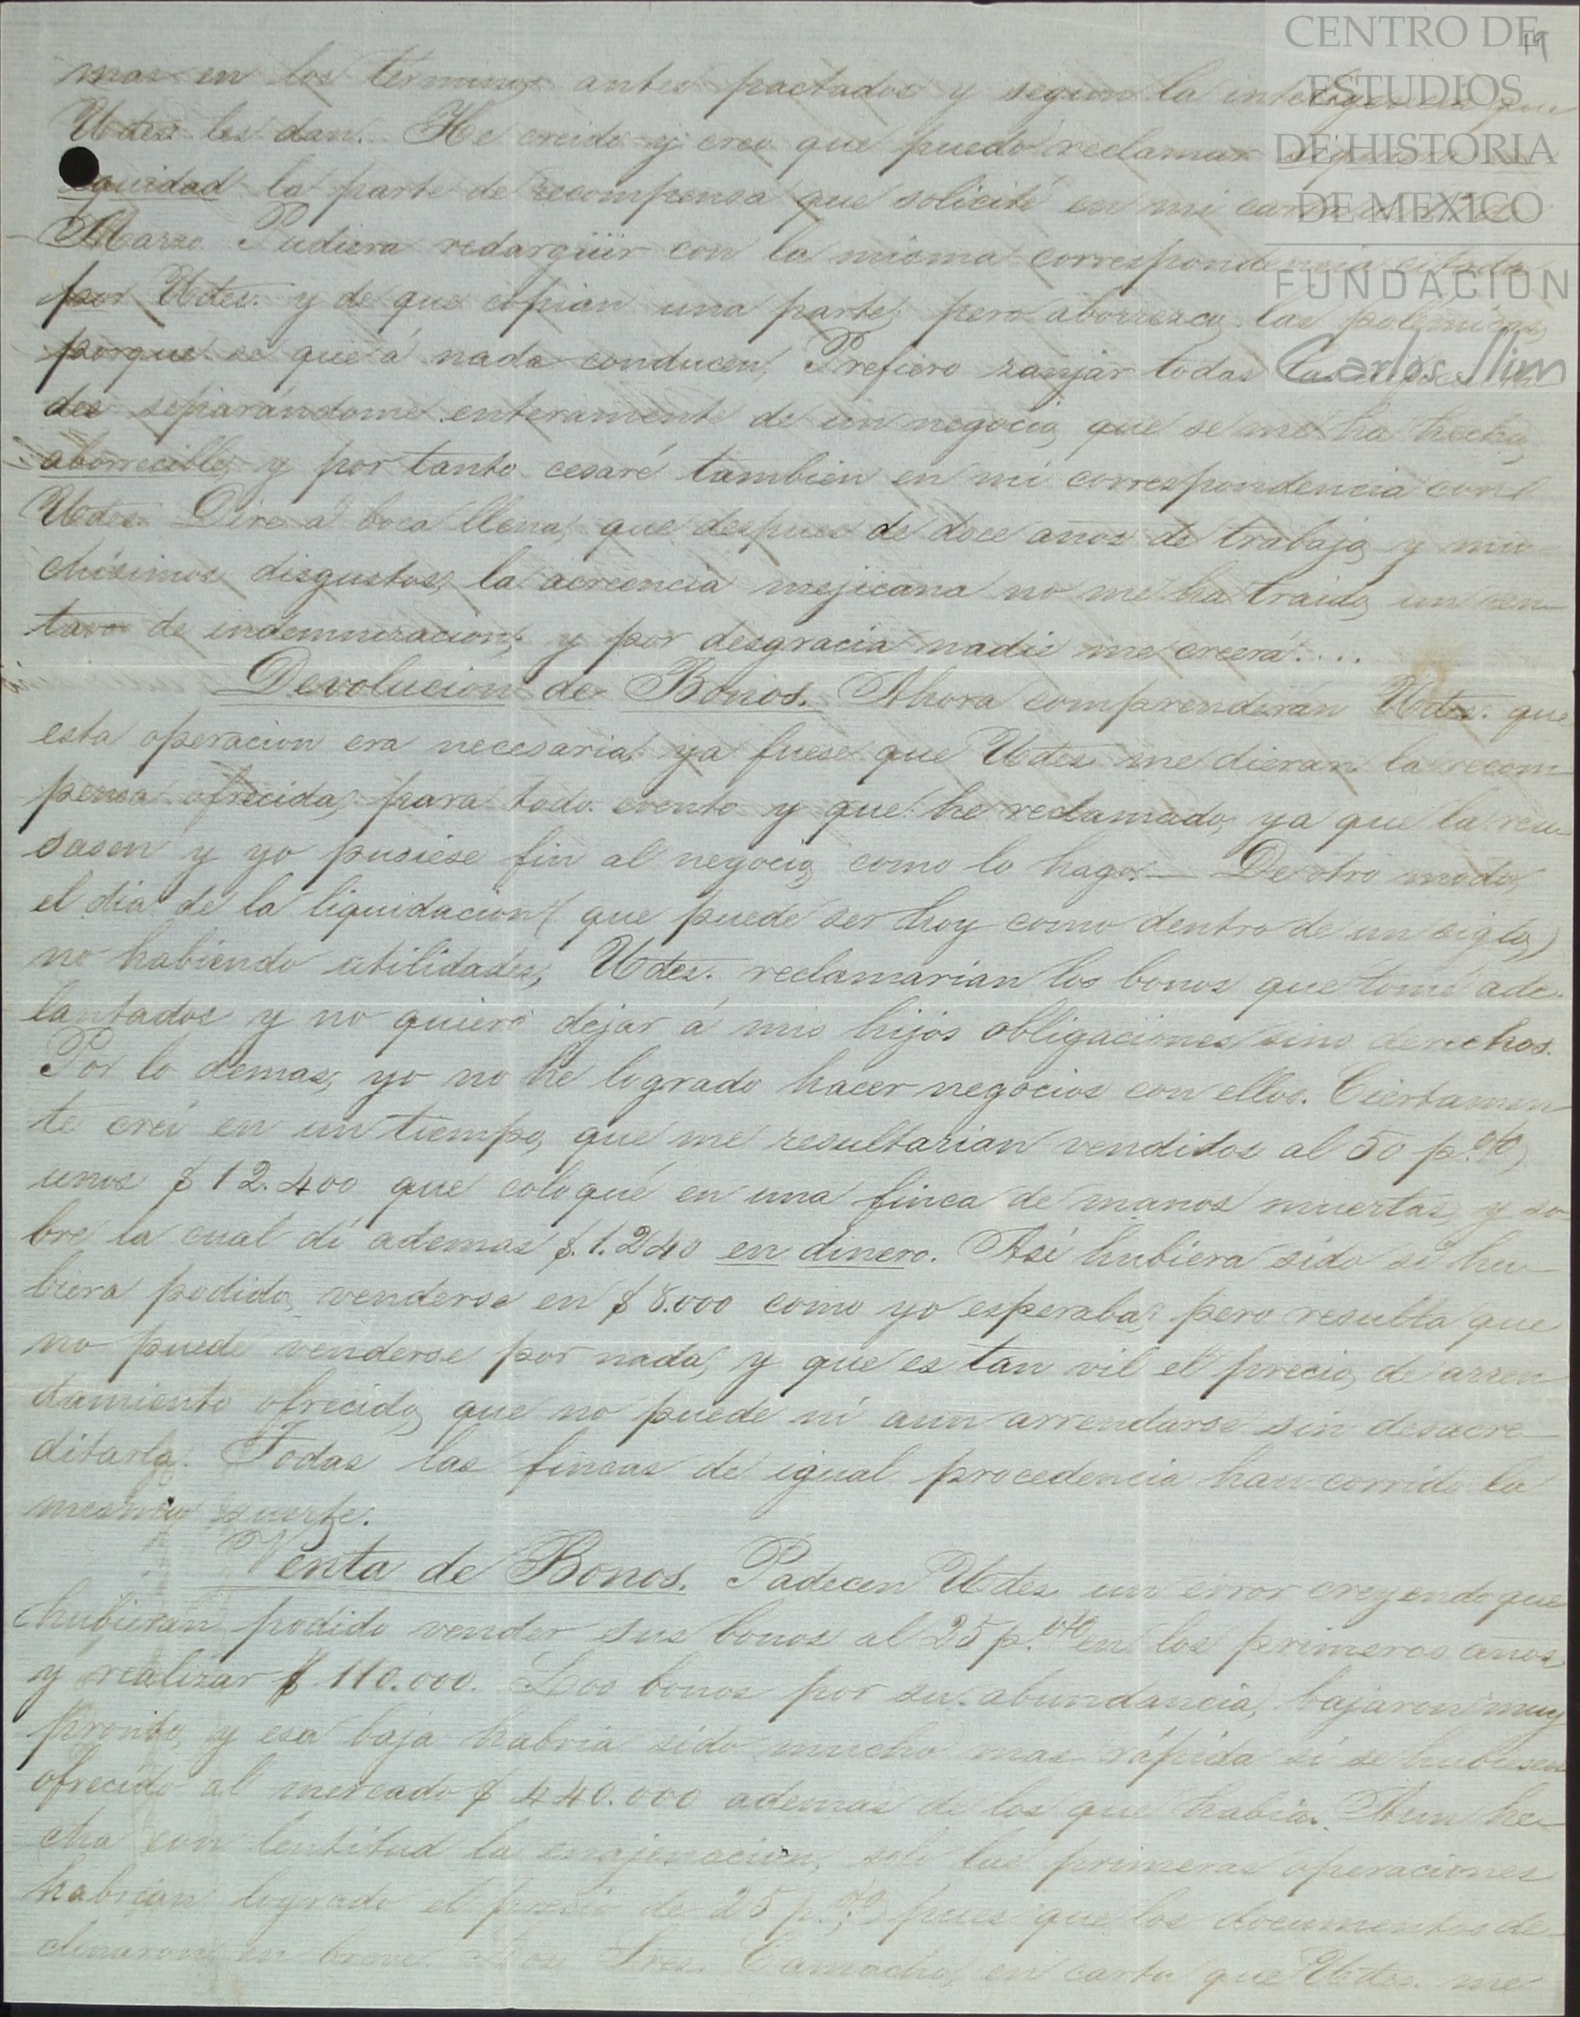 CENTRO DE
ESTUDIOS
DE HISTORIA
DE MEXICO
FUNDACION
Carlos Slim
19
mas en los términos antes pactados y segun la inteligencia que
Udes. les dan. He creido y creo que puedo reclamar
equidad la parte de recompensa que solicité en mi carta
Marzo. Pudiera redargüir con la misma correspondencia citada
por Udes. y de que copian una parte, pero aborrezco las polémicas,
porque se que á nada conducen. Prefiero zanjar todas las
des separándome enteramente de un negocio, que se me ha hecho
aborrecible, y por tanto cesaré tambien en mi correspondencia con
Udes. Diré á boca llena, que despues de doce años de trabajo, y mu-
chísimos disgustos, la acreencia mejicana no me ha traido, un cen-
tavo de indemnizacion, y por desgracia nadie me creerá....
Devolucion de Bonos. Ahora comprenderán Udes. que
esta operacion era necesaria, ya fuese que Udes. me dieran la recom-
pensa ofrecida, para todo evento y que he reclamado, ya que la reu-
sasen y yo pusiese fin al negocio, como lo hago. — De otro modo,
el dia de la liquidacion (que puede ser hoy como dentro de un siglo)
no habiendo utilidades, Udes. reclamarian los bonos que tomé ade-
lantados y no quiero dejar á mis hijos obligaciones sino derechos.
Por lo demas, yo no he logrado hacer negocios con ellos. Ciertamen-
te creí en un tiempo, que me resultarian vendidos al 50 p.%
unos $12.400 que coloqué en una finca de manos muertas, y so-
bre la cual dí ademas $.1.240 en dinero. Así hubiera sido si hu-
biera podido venderse en $8.000 como yo esperaba; pero resulta que
no puede venderse por nada, y que es tan vil el precio de arren-
damiento ofrecido, que no puede ni aun arrendarse sin desacre-
ditarla. Todas las fincas de igual procedencia han corrido la
misma suerte.
Venta de Bonos. Padecen Udes. un error creyendo que
hubieran podido vender sus bonos al 25 p.% en los primeros años
y realizar $.110.000. Los bonos por su abundancia, bajaron muy
pronto, y esa baja habria sido mucho mas rápida si se hubiesen
ofrecido al mercado $440.000 ademas de los que habia. Aun he-
cha con lentitud la enajenacion, solo las primeras operaciones
habrian logrado el precio de 25 p.%, pues que los documentos de-
clinaron en breve. Los Sres. Camacho, en carta que Udes. me